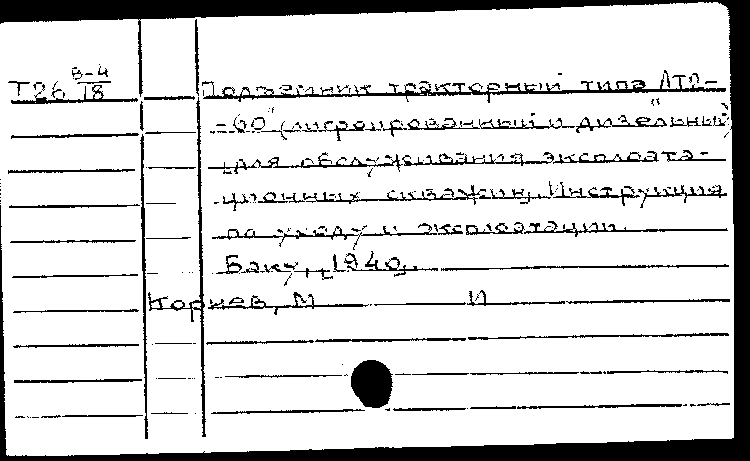 Т26 В-4/Т8 Подъемник тракторный типа ЛТП-
-60" (лигроированный и дизельный)
для обслуживания эксплоата-
ционных скважин. Инструкция
по уходу и эксплоатации.
Баку, 1940.
Корнев, М И